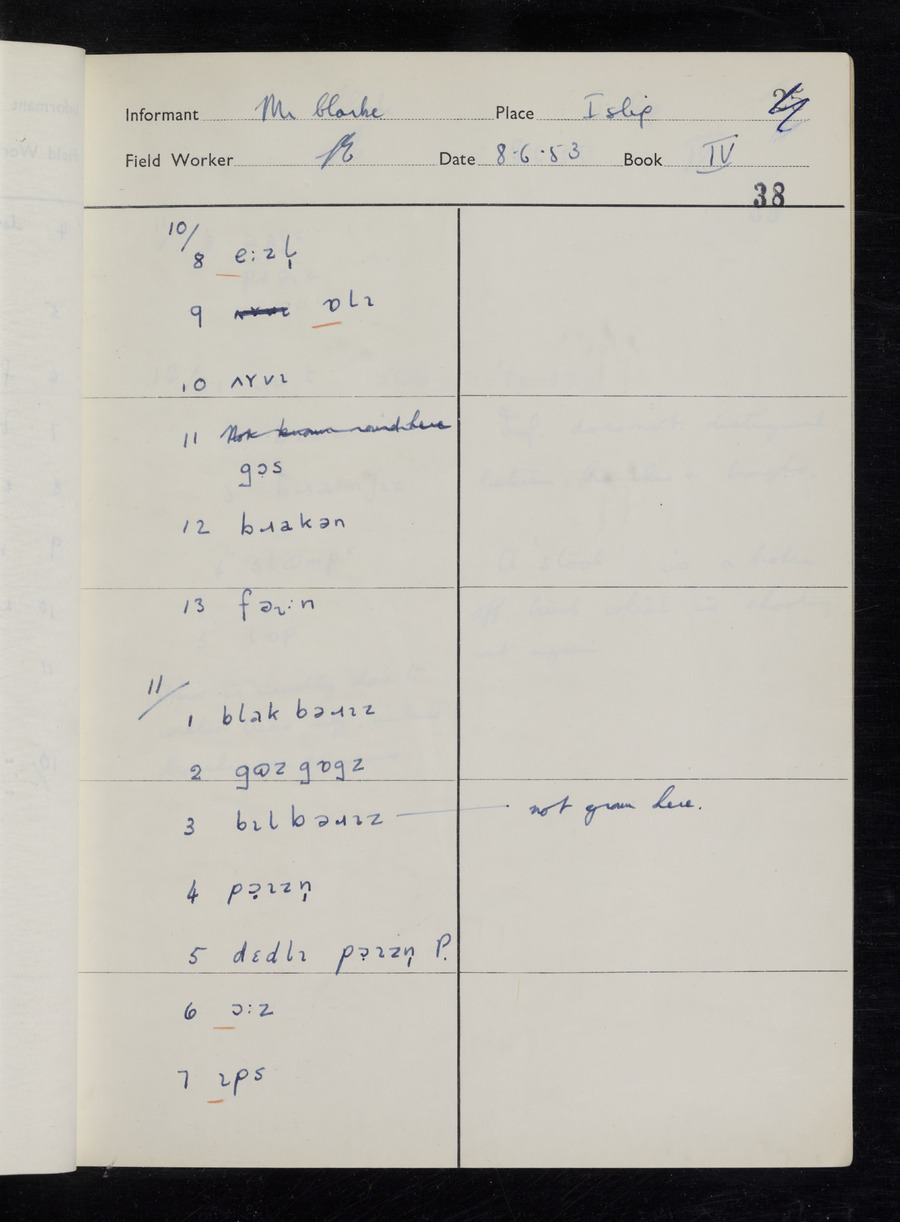 Informant Mr Clarke Place Islip
Field Worker Date 8·6·53 Book IV
38
10/
8 e:zl̩
9 ɒlɪ
10 ʌɪvɪ
11 Not known round here
gɔs
12 bɹakən
13 fəɪ:n
11/
1 blak bəɹɪz
2 gɷz gɒgz
3 bɪl bəɹɪz not grown here.
4 pə̣ɪzn̩
5 dɛdlɪ pə̣ɪzn̩ P.
6 ɔ:z
7 ɪps